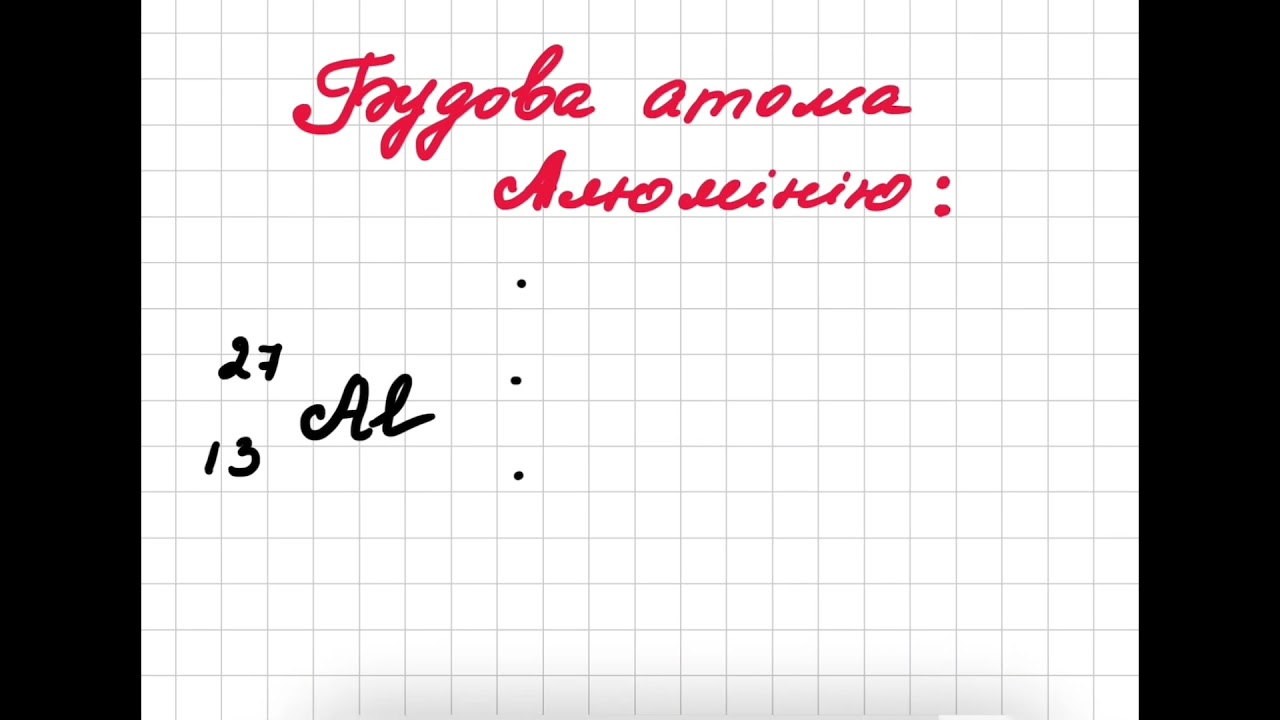 Будова атома
Алюмінію:
27
Al
13